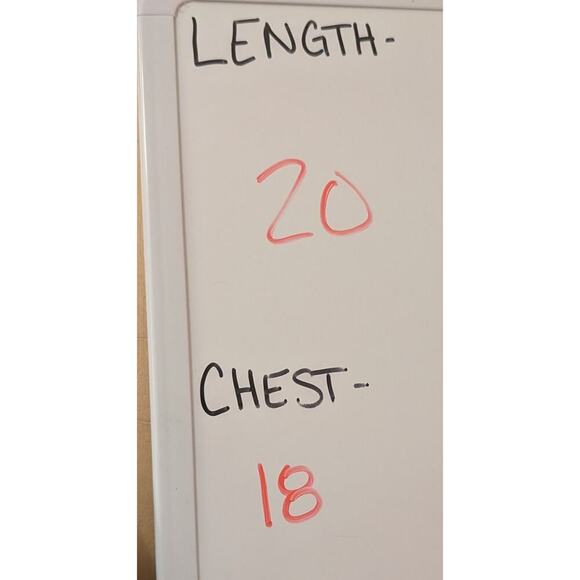 LENGTH-
20
CHEST-
18